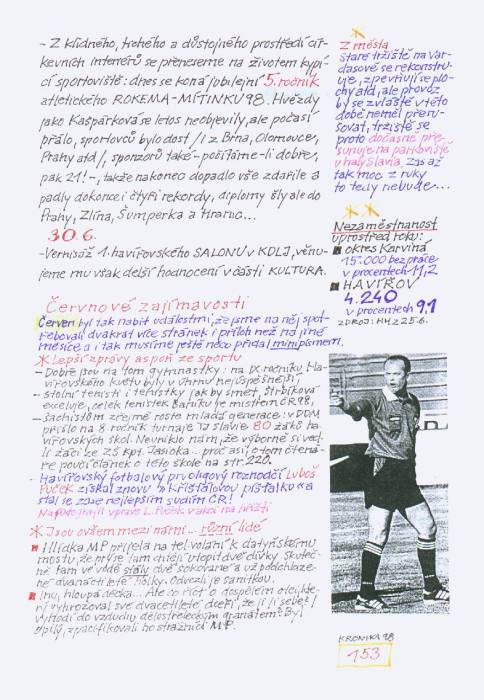 - Z klidného, tichého a důstojného prostředí cír-
kevních interiérů se přeneseme na životem kypí-
cí sportoviště: dnes se koná jubilejní 5. ročník
atletického ROKEMA-MÍTINKU 98. Hvězdy
jako Kašpárková se letos neobjevily, ale počasí
přálo, sportovců bylo dost /i z Brna, Olomouce,
Prahy atd/, sponzorů také - počítáme-li dobře,
pak 21! -, takže nakonec dopadlo vše zdařile a
padly dokonce i čtyři rekordy, diplomy šly ale do
Prahy, Zlína, Šumperka a Hranic...
30.6.
- Vernisáž 1. havířovského SALONU v KDLJ, věnu-
jeme mu však delší hodnocení v části KULTURA.
Červnové zajímavosti
Červen byl tak nabitě událostmi, že jsme na něj spot-
řebovali dvakrát více stránek i příloh než na jiné
měsíce a i tak musíme ještě něco přidat minipísmem.
* Lepší zprávy aspoň ze sportu
- Dobře jsou na tom gymnastky: na IX. ročníku Ha-
vířovského květu byly v úhrnu nejúspěšnější,
- stolní tenisti i tenistky jakby smet, Štrbíková
exceluje, celek tenistek Baníku je mistrem ČR 98,
- šachistům zřejmě roste mladá generace: v DDM
přišlo na 8. ročník turnaje TJ Slavie 80 žáků ha-
vířovských škol. Neuniklo nám, že výborně si ved-
li žáci ze ZŠ kpt. Jasioka... proč asi, o tom čtená-
ře poučí článek o této škole na str. 220.
- Havířovský fotbalový prvoligový rozhodčí Luboš
Puček získal znovu "Křišťálovou píšťalku" a
stal se zase nejlepším sudím ČR!
Na fotografii vpravo L. Puček v akci na hřišti
* Jsou ovšem mezi námi... různí lidé
Hlídka MP přijela na tel. volání k datyňskému
mostu, že prý se tam chtějí utopit dvě dívky. Skuteč-
ně tam ve vodě stály dvě sokované a už podchlaze-
né dvanáctileté holky. Odvezli je sanitkou.
Inu, hloupá děcka... Ale co říct o dospělém otci, kte-
rý vyhrožoval své dvacetileté dceři, že ji i sebe
vyhodí do vzduchu dělostřeleckým granátem? Byl
opilý, zpacifikovali ho strážníci MP.
Z města
Staré tržiště na Var-
dasově se rekonstru-
uje, zpevňují se plo-
chy atd, ale provoz
by se zvláště v této
době neměl přeru-
šovat, tržiště se
proto dočasně pře-
sunuje na parkoviště
u haly Slavia. Zas až
tak moc z ruky
to tedy nebude...
Nezaměstnanost
uprostřed roku:
okres Karviná
15.000 bez práce
v procentech 11,2
HAVÍŘOV
4.240
v procentech 9,1
ZDROJ: HN z 25.6.
KRONIKA 98
153